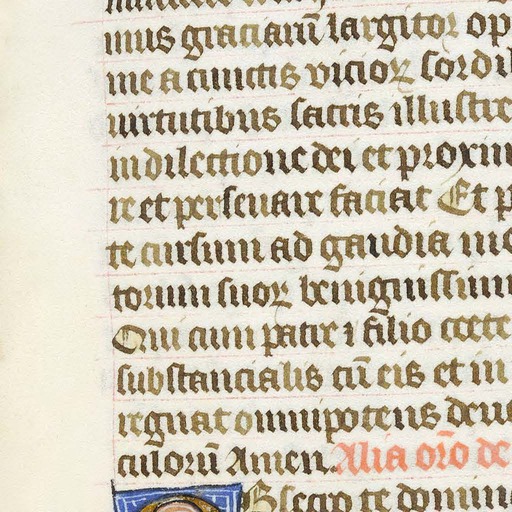 mus graciarū largitor op
me a cunctis vicioꝝ sordi
uirtutibus sacris illustre
in dilectione dei et proxim
re et perseuare faciat Et p
te cursum ad gaudia
torum suoꝝ benignissim
Qui cum patre ⁊ filio
substancialis cū eis et in
regnat omnipotens deus
culorū Amen. Alia oro de
te domin